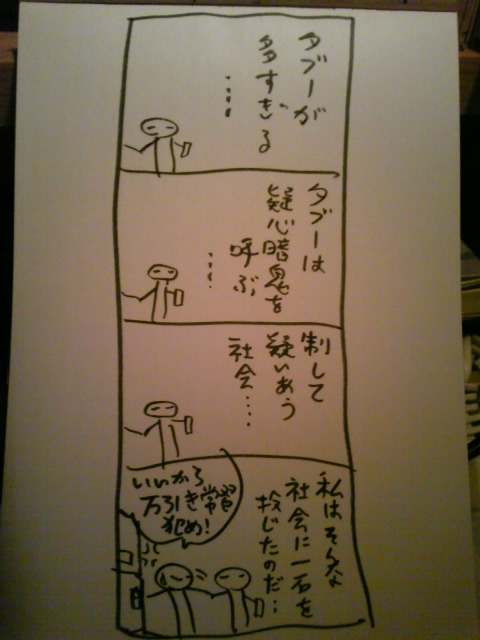 タブーが
多すぎる
……
タブーは
疑心暗鬼を
呼ぶ
……
制して
疑いあう
社会……
私はそんな
社会に一石を
投じたのだ…
いいから
万引き常習
犯め！